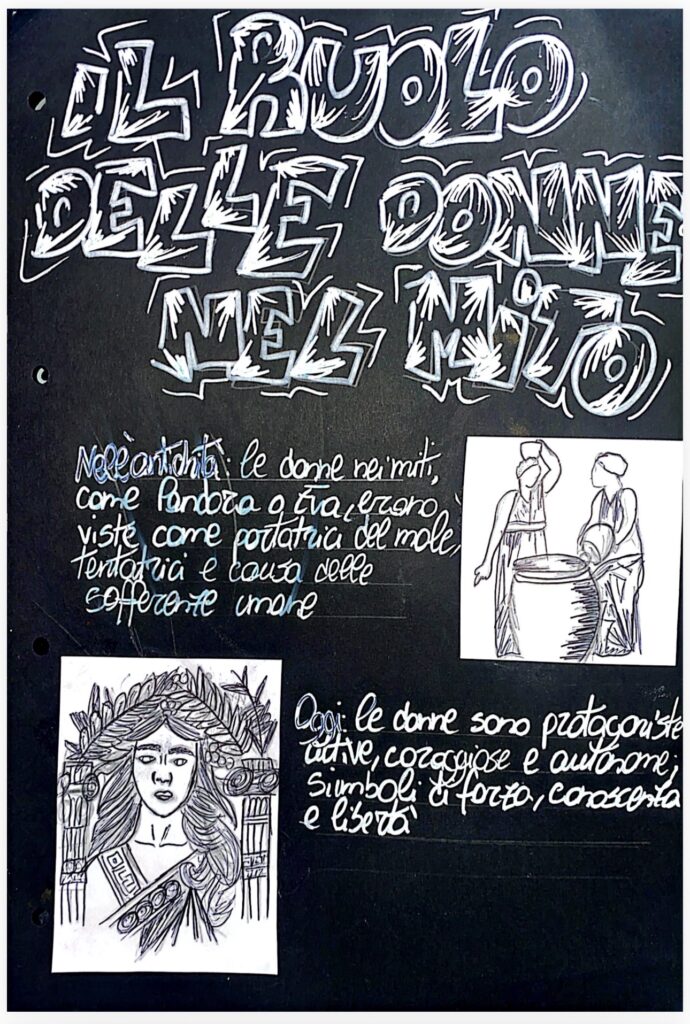 IL RUOLO
DELLE DONNE
NEL MITO
Nell'antichità: le donne nei miti,
come Pandora o Eva, erano
viste come portatrici del male,
tentatrici e causa delle
sofferenze umane
Oggi: le donne sono protagoniste
attive, coraggiose e autonome,
simboli di forza, conoscenza
e libertà